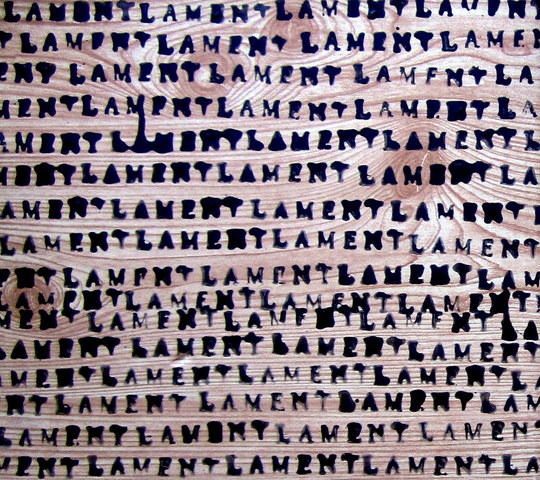 LAMENT LAMENT LAMENT LAMENT
T LAMENT LAMENT LAMENT LAMEN
ENT LAMENT LAMENT LAMENT LA
MENT LAMENT LAMENT LAMENT LA
AMENT LAMENT LAMENT LAMENT L
MENT LAMENT LAMENT LAMENT LA
AMENT LAMENT LAMENT LAMENT L
LAMENT LAMENT LAMENT LAMENT
ENT LAMENT LAMENT LAMENT LAM
LAMENT LAMENT LAMENT LAMENT
MENT LAMENT LAMENT LAMENT LA
LAMENT LAMENT LAMENT LAMENT
AMENT LAMENT LAMENT LAMENT L
RNT LAMENT LAMENT LAMENT LAM
LAMENT LAMENT LAMENT LAMENT
MENT LAMENT LAMENT LAMENT LA